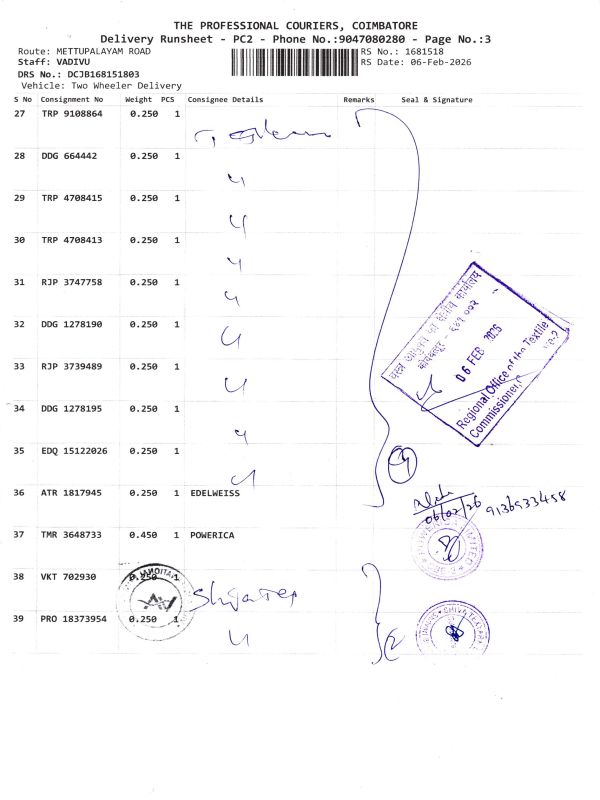 THE PROFESSIONAL COURIERS, COIMBATORE
Delivery Runsheet - PC2 - Phone No.:9047080280 - Page No.:3
Route: METTUPALAYAM ROAD RS No.: 1681518
Staff: VADIVU RS Date: 06-Feb-2026
DRS No.: DCJB168151803
Vehicle: Two Wheeler Delivery
S No Consignment No Weight PCS Consignee Details Remarks Seal & Signature
27 TRP 9108864 0.250 1
28 DDG 664442 0.250 1
29 TRP 4708415 0.250 1
30 TRP 4708413 0.250 1
31 RJP 3747758 0.250 1
32 DDG 1278190 0.250 1
33 RJP 3739489 0.250 1
34 DDG 1278195 0.250 1
35 EDQ 15122026 0.250 1
9
06 FEB 2026
Regional Office of the Textile
Commissioner,
36 ATR 1817945 0.250 1 EDELWEISS
06/02/26 9136533458
37 TMR 3648733 0.450 1 POWERICA
38 VKT 702930 0.250 1
39 PRO 18373954 0.250 1
2